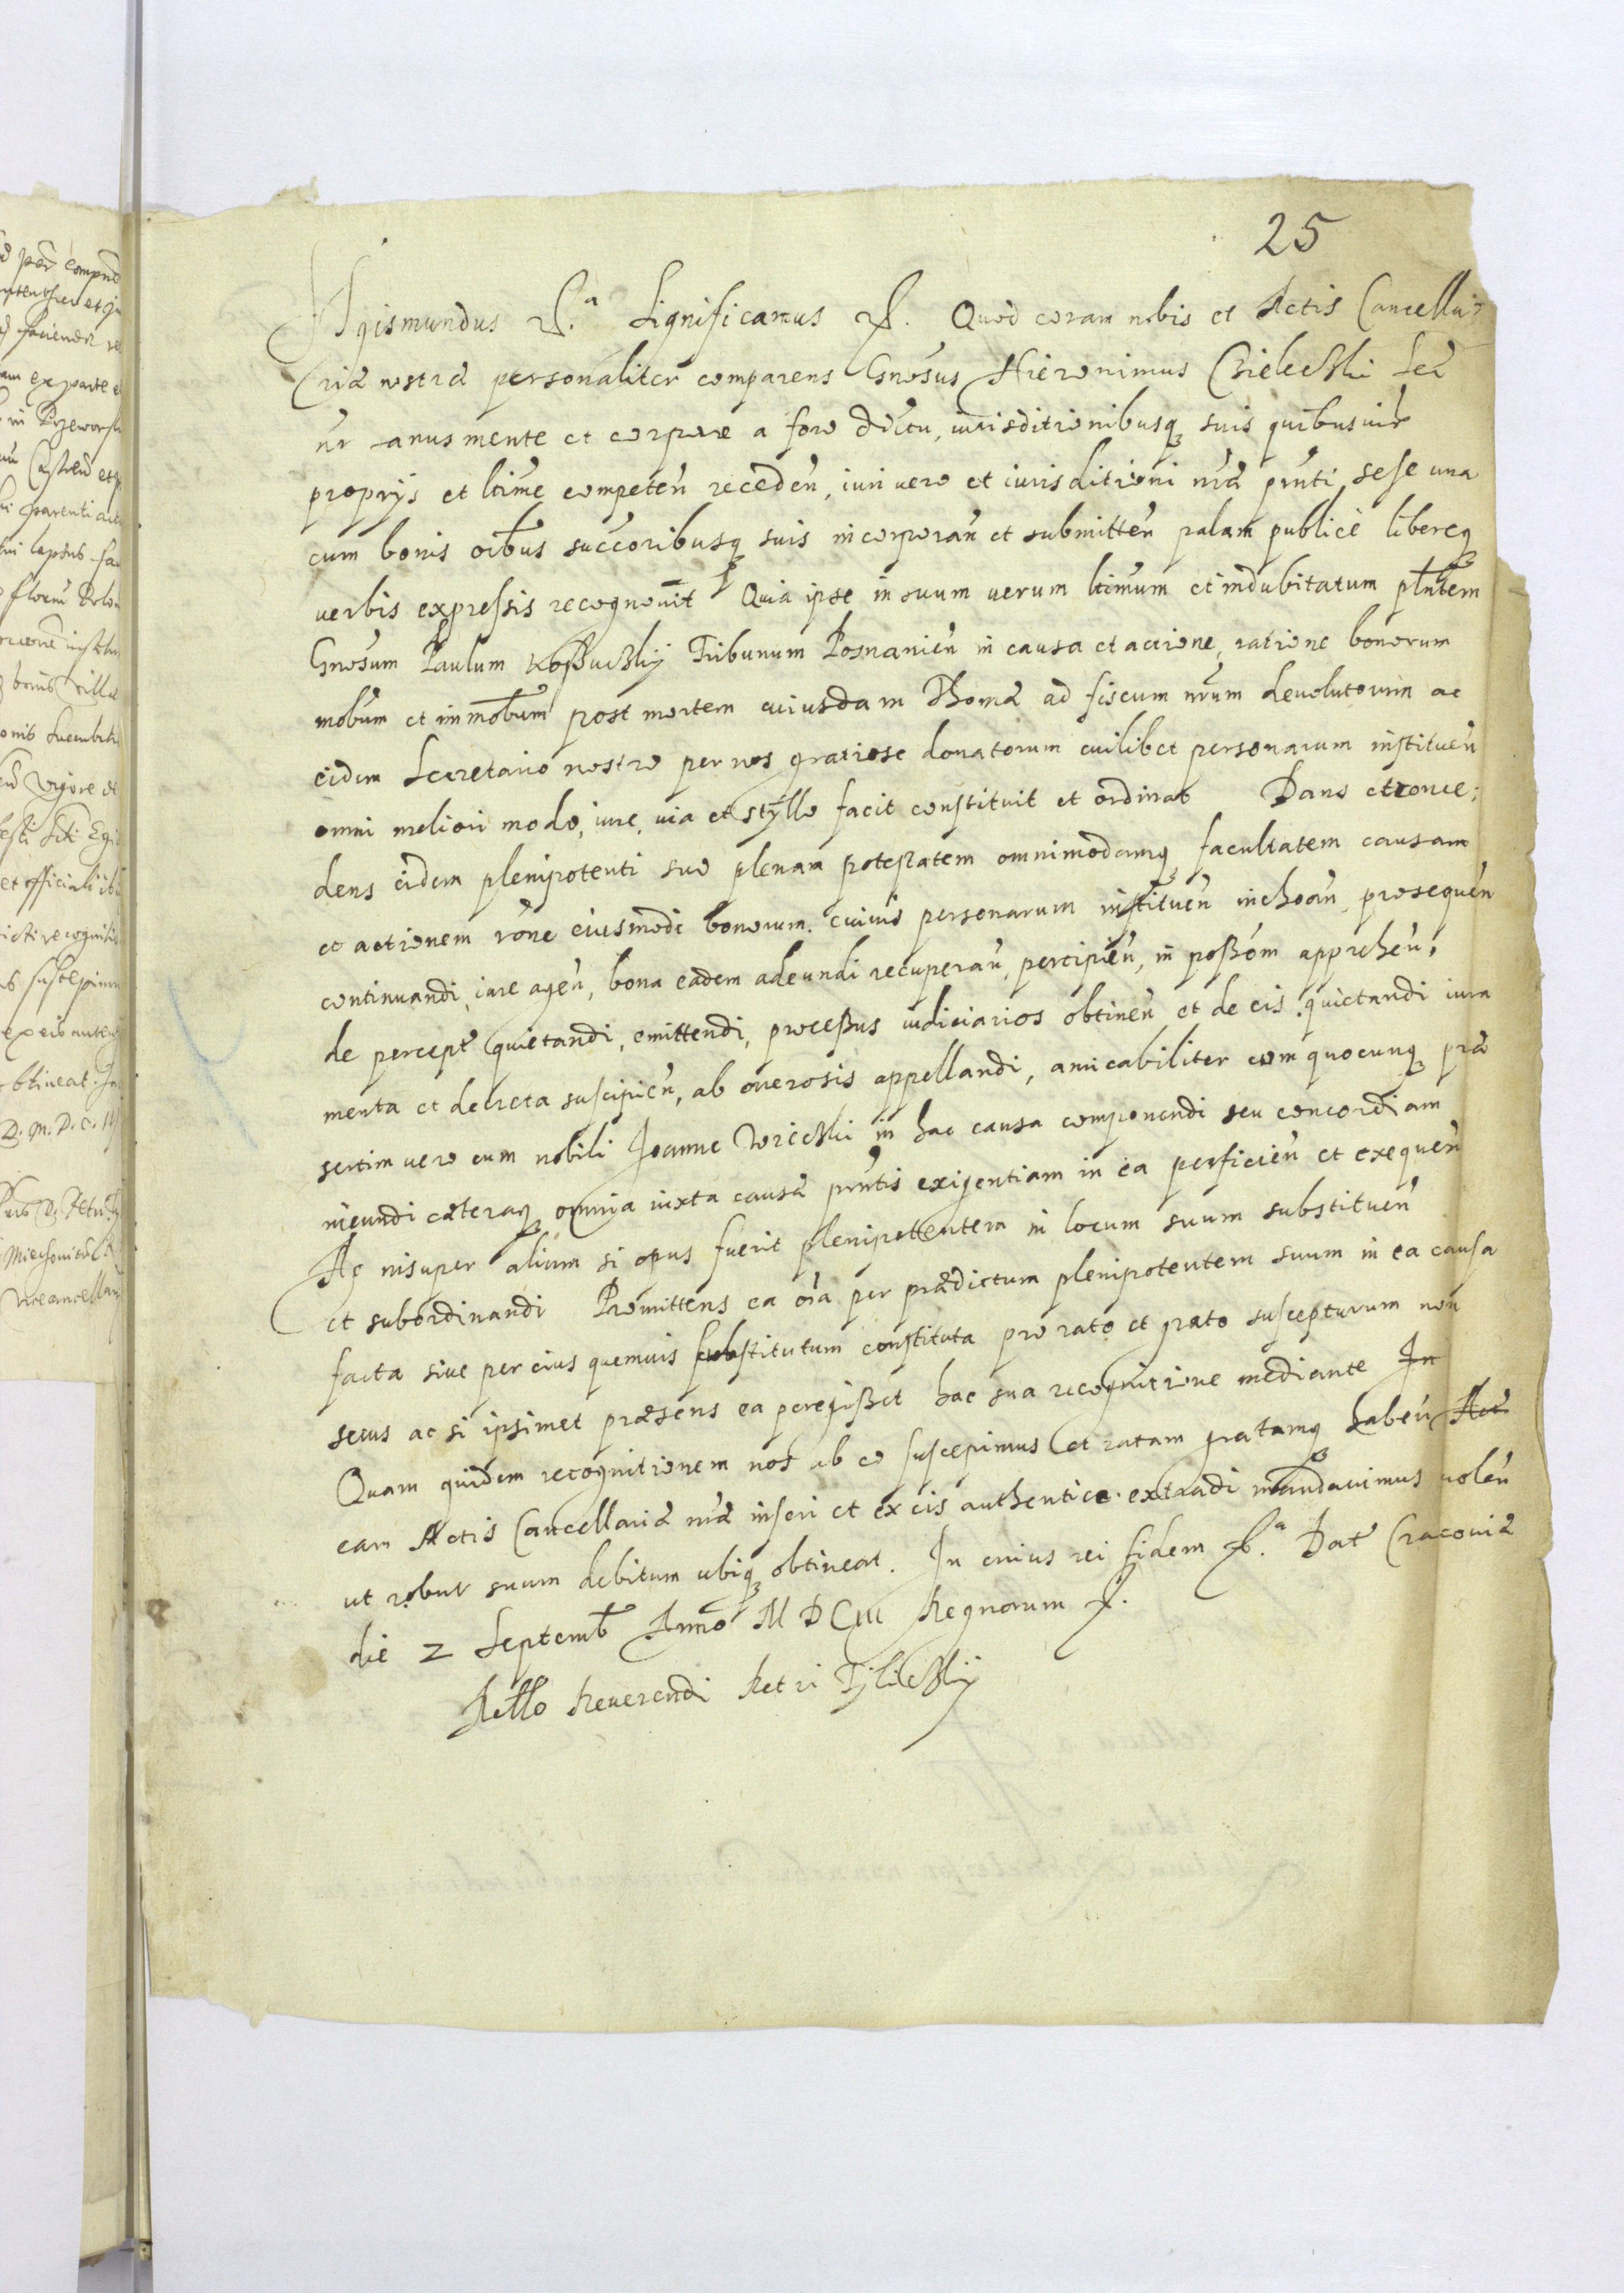 25
Sigismundus &.a Significamus &. Quod coram nobis et Actis Cancella-
riæ nostræ personaliter comparens Gnosus Hieronimus Bielecki Secr
nr sanus mente et corpore a foro districtu, iurisditionibusq suis quibusuis
proprijs et ltime competen receden, iuri uero et iurisditioni nræ pnti sese una
cum bonis oibus succoribusq suis incorporan et submitten palam publicè libereq
verbis expressis recognouit Quia ipse in suum uerum ltimum et indubitatum plntem
Gnosum Paulum Tribunum Posnanien in causa et actione, ratione bonorum
mobum et immobum post mortem cuiusdam Thomæ ad fiscum nrum deuolutorum ac
eidem Secretario nostro per nos gratiose donatorum cuilibet personarum instituen
omni meliori modo, iure, uia et stÿllo facit constituit et ordinat Dans et conce:
dens eidem plenipotenti suo plenam potestatem omnimodamq facultatem causam
et actionem rone eiusmodi bonorum cuiuis personarum instituen inchoan, prosequen
continuandi, iure agen, bona eadem adeundi recuperan, percipien, in possom apprehen,
de percept quietandi, emittendi, processus iudiciarios obtinen et de eis quietandi iura
menta et decreta suscipien, ab onerosis appellandi, amicabiliter com quocunq præ
sertim uero cum nobili Joanne in hac causa componendi seu concordiam
ineundi cæteraq omnia iuxta causæ pntis exigentiam in ea perficien et exequen
Ac insuper alium si opus fuerit plenipotentem in locum suum substituen
et subordinandi Promittens ea oia per prædictum plenipotentem suum in ea causa
facta siue per eius quemuis substitutum constituta pro rato et grato suscepturum non
secus ac si ipsimet præsens ea peregisset hac sua recognitione mediante In
Quam quidem recognitionem nos ab eo suscepimus et ratam gratamq haben Act
eam Actis Cancellariæ nræ inseri et ex eis authentice extradi mandauimus uolen
ut robur suum debitum ubiq obtineat. In cuius rei fidem &.a Dat Cracouiæ
die 2 Septemb Anno M D CIII Regnorum &.
Rello Reuerendi Petri Tÿlickÿ